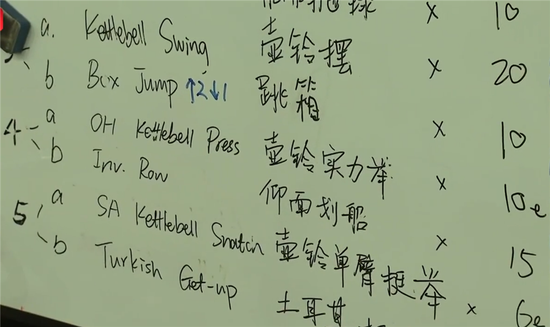 × 10
a. Kettlebell Swing 壶铃摆 × 20
b Box Jump ↑2↓1 跳箱 × 10
4 a OH Kettlebell Press 壶铃实力举 × 10e
b Inv. Row 仰面划船 × 15
5 a SA Kettlebell Snatch 壶铃单臂挺举 × 6e
b Turkish Get-up 土耳其